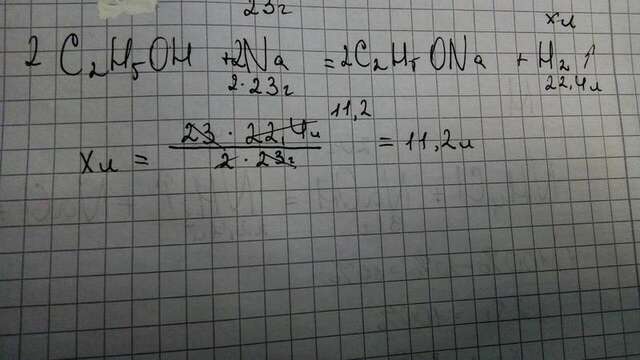 23г
xл
2 C₂H₅OH + 2Na = 2C₂H₅ONa + H₂ ↑
2·23г 22,4л
11,2
xл = 23 · 22,4л / 2 · 23г = 11,2л